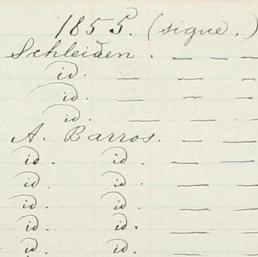 1855. (sigue.)
Schleiden. — — —
id. — — —
id. — — —
id. — — —
A. Barros. — — —
id. id. — —
id. id. — —
id. id. — —
id. id. — —
id. id. — —